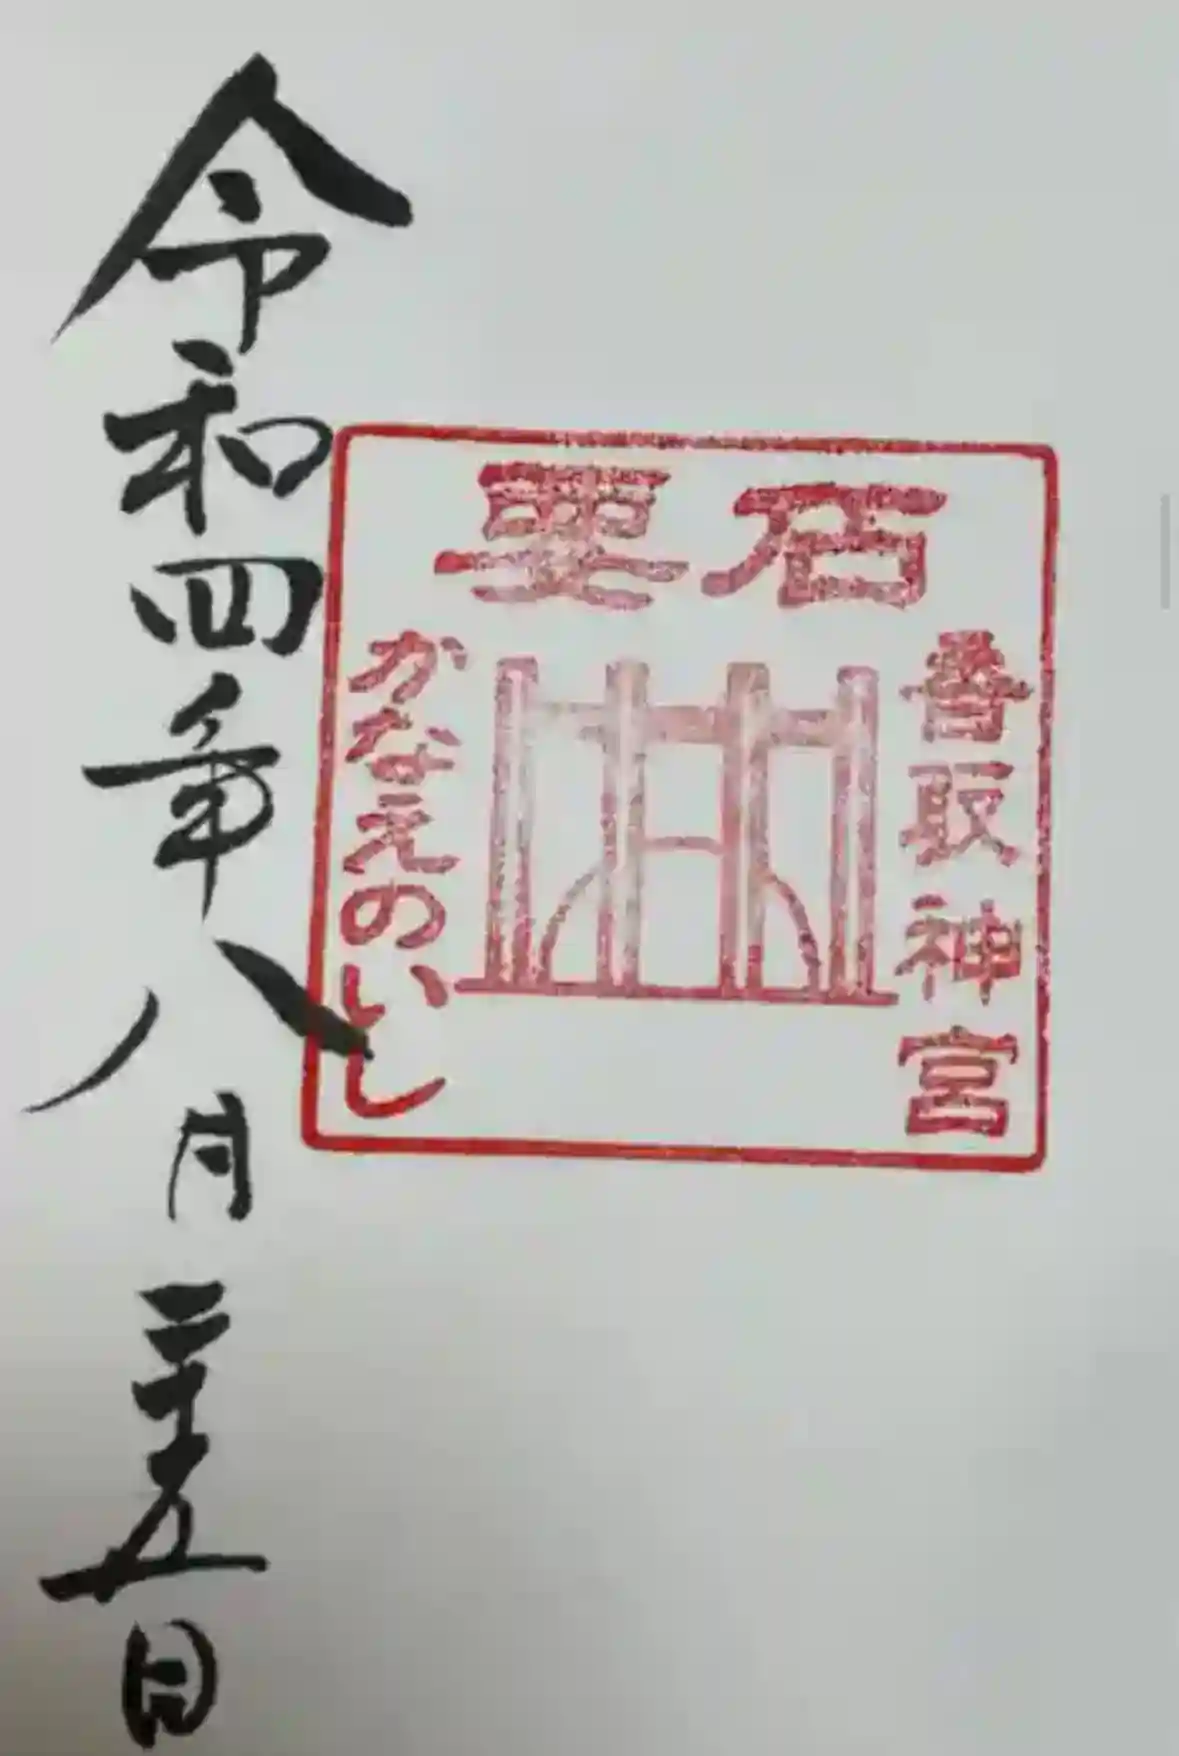 要石
香取神宮
かなえのいし
令和四年八月二十五日